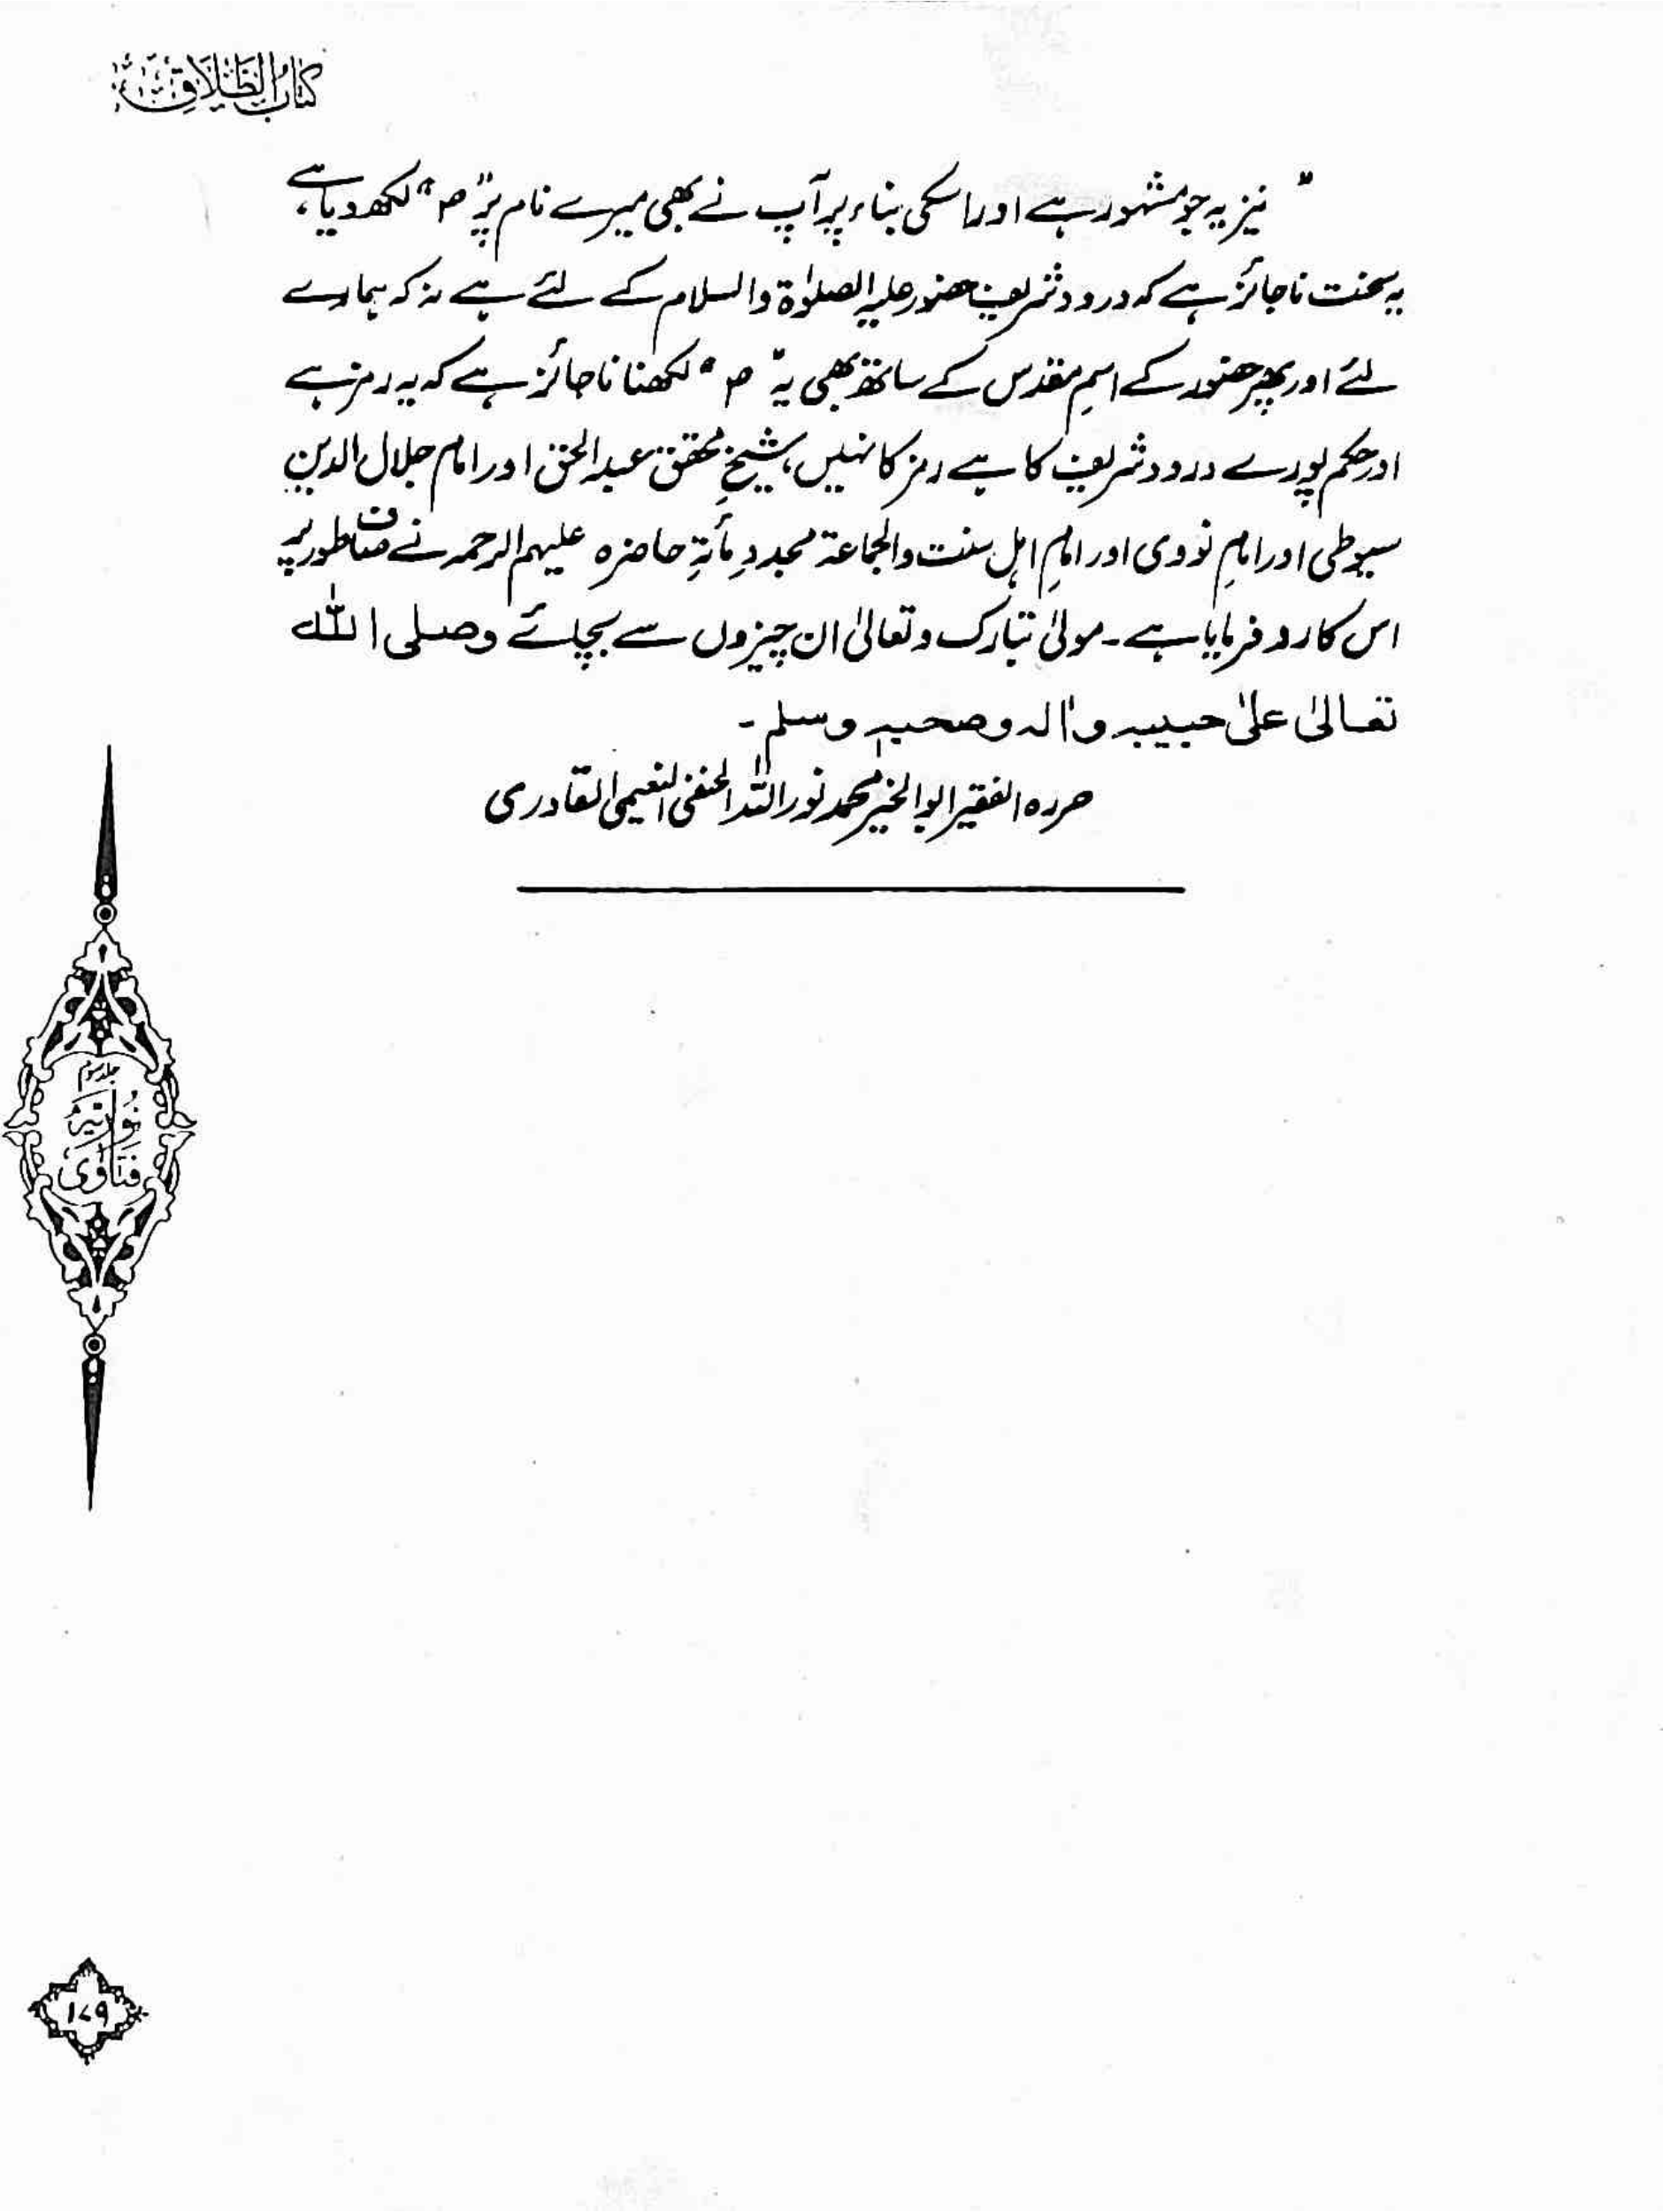 کتاب الطلاق
" نیز یہ جو مشہور ہے اور اسکی بناء پر آپ نے بھی میرے نام پر "ص" لکھ دیا ہے،
یہ سخت ناجائز ہے کہ درود شریف حضور علیہ الصلوٰۃ والسلام کے لئے ہے نہ کہ ہمارے
لئے اور پھر حضور کے اسمِ مقدس کے ساتھ بھی یہ "ص" لکھنا ناجائز ہے کہ یہ رمز ہے
اور حکم پورے درود شریف کا ہے رمز کا نہیں، شیخِ محقق عبدالحق اور امام جلال الدین
سیوطی اور امامِ نووی اور امامِ اہلِ سنت والجماعۃ مجددِ مأتِہ حاضرہ علیہم الرحمہ نے صاف طور پر
اس کا رد فرمایا ہے۔ مولیٰ تبارک وتعالیٰ ان چیزوں سے بچائے وصلی اللہ
تعالیٰ علیٰ حبیبہ واٰلہ وصحبہٖ وسلم۔
حررہ الفقیر ابوالخیر محمد نور اللہ الحنفی النعیمی القادری
جلد سوم
نوریہ
فتاویٰ
۱۷۹